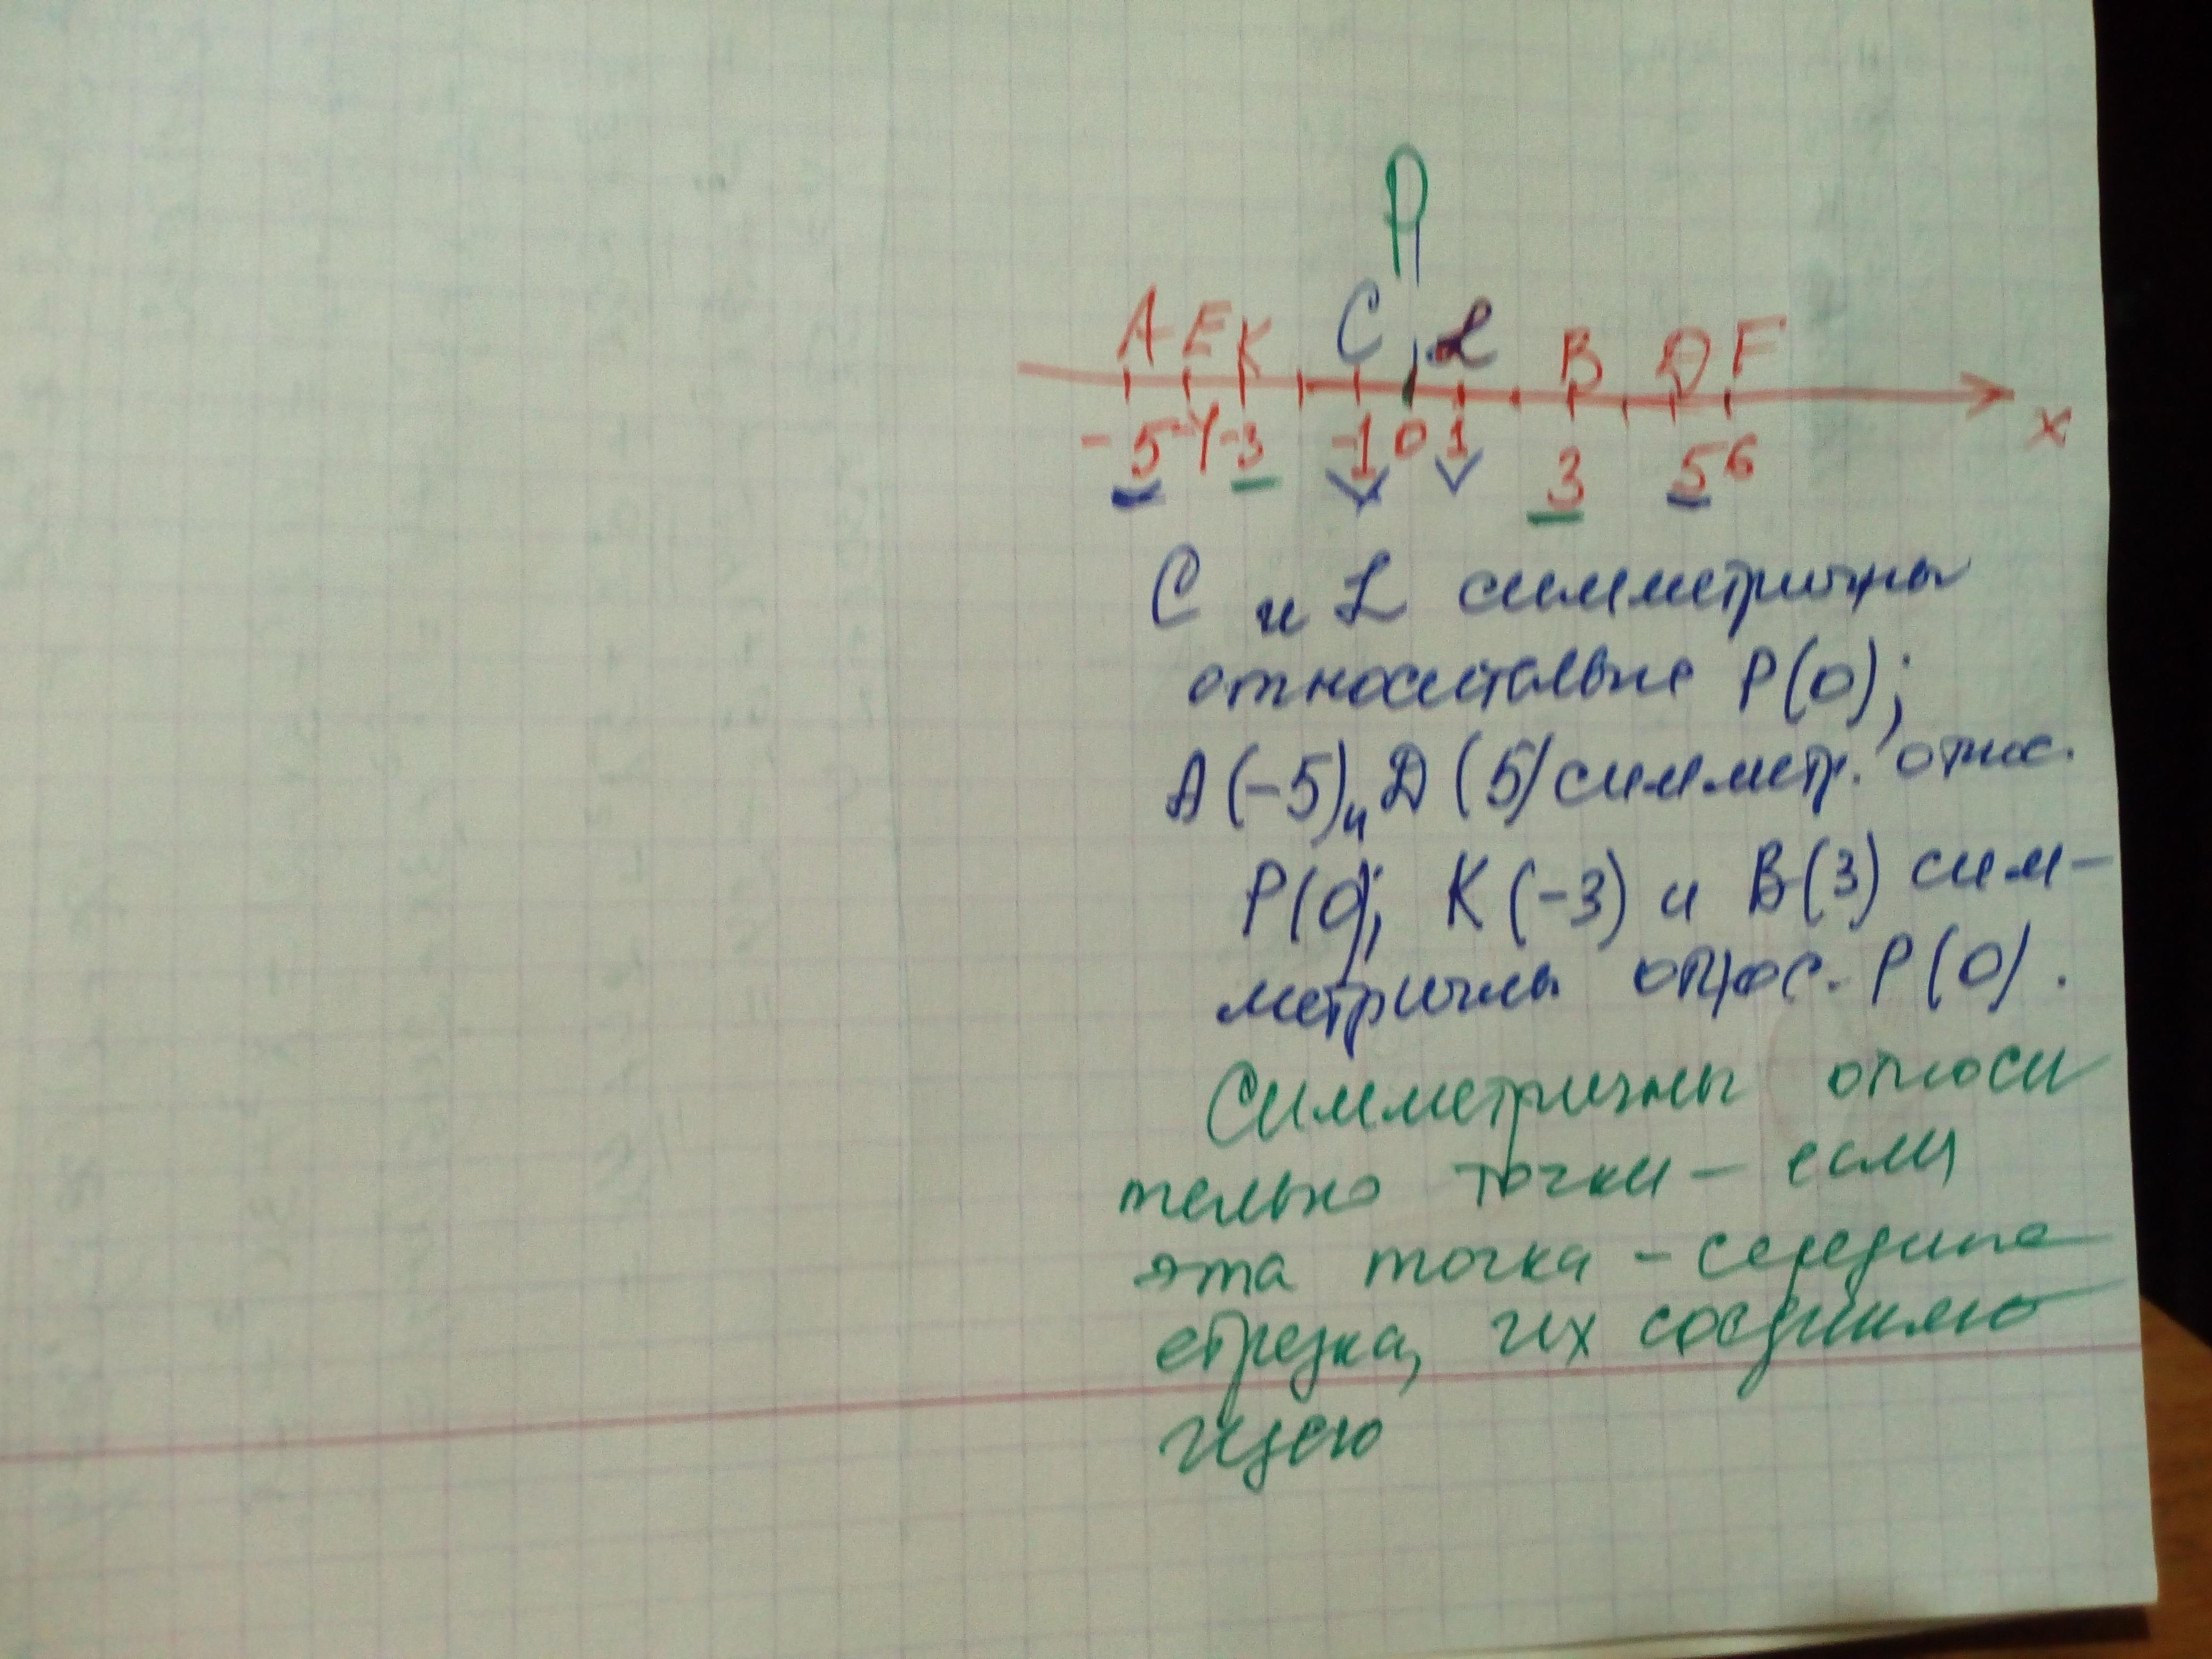 P
A E K C L B D F
-5 -4 -3 -1 0 1 3 5 6 x
C и L симметричны
относительно P(0);
A(-5) и D(5) симметр. отнс.
P(0); K(-3) и B(3) сим-
метричны относ. P(0).
Симметричны относи
тельно точки - если
эта точка - середина
отрезка, их соединяю
щего